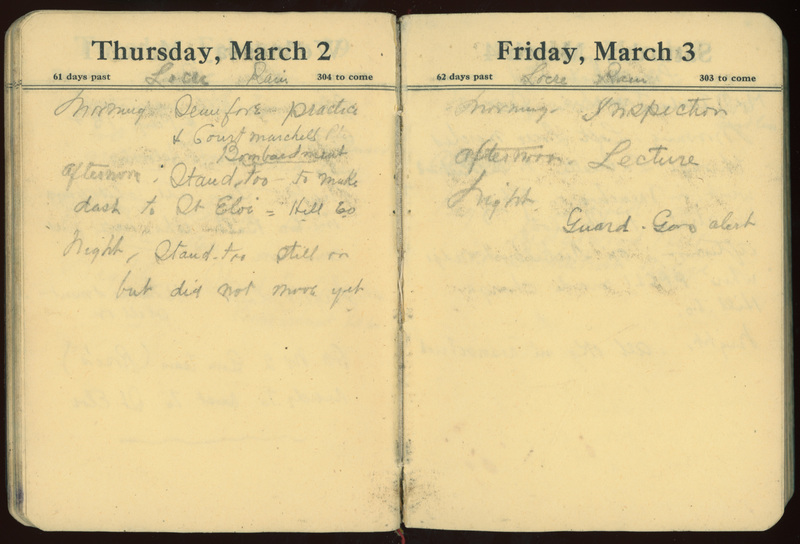 Thursday, March 2
61 days past Locre Rain 304 to come
Morning Semifore practice
& Court marshell
Bombardment
afternoon; Stand, too - to make
dash to St Eloi = Hill 60
Night, Stand-too still on
but did not move yet
Friday, March 3
62 days past Locre Rain 303 to come
Morning- Inspection
afternoon. Lecture
Night
Guard. Gas alert